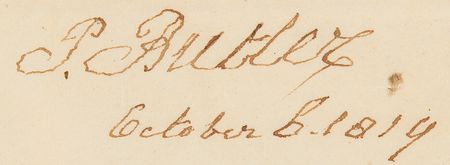 P. Butler
October 1819